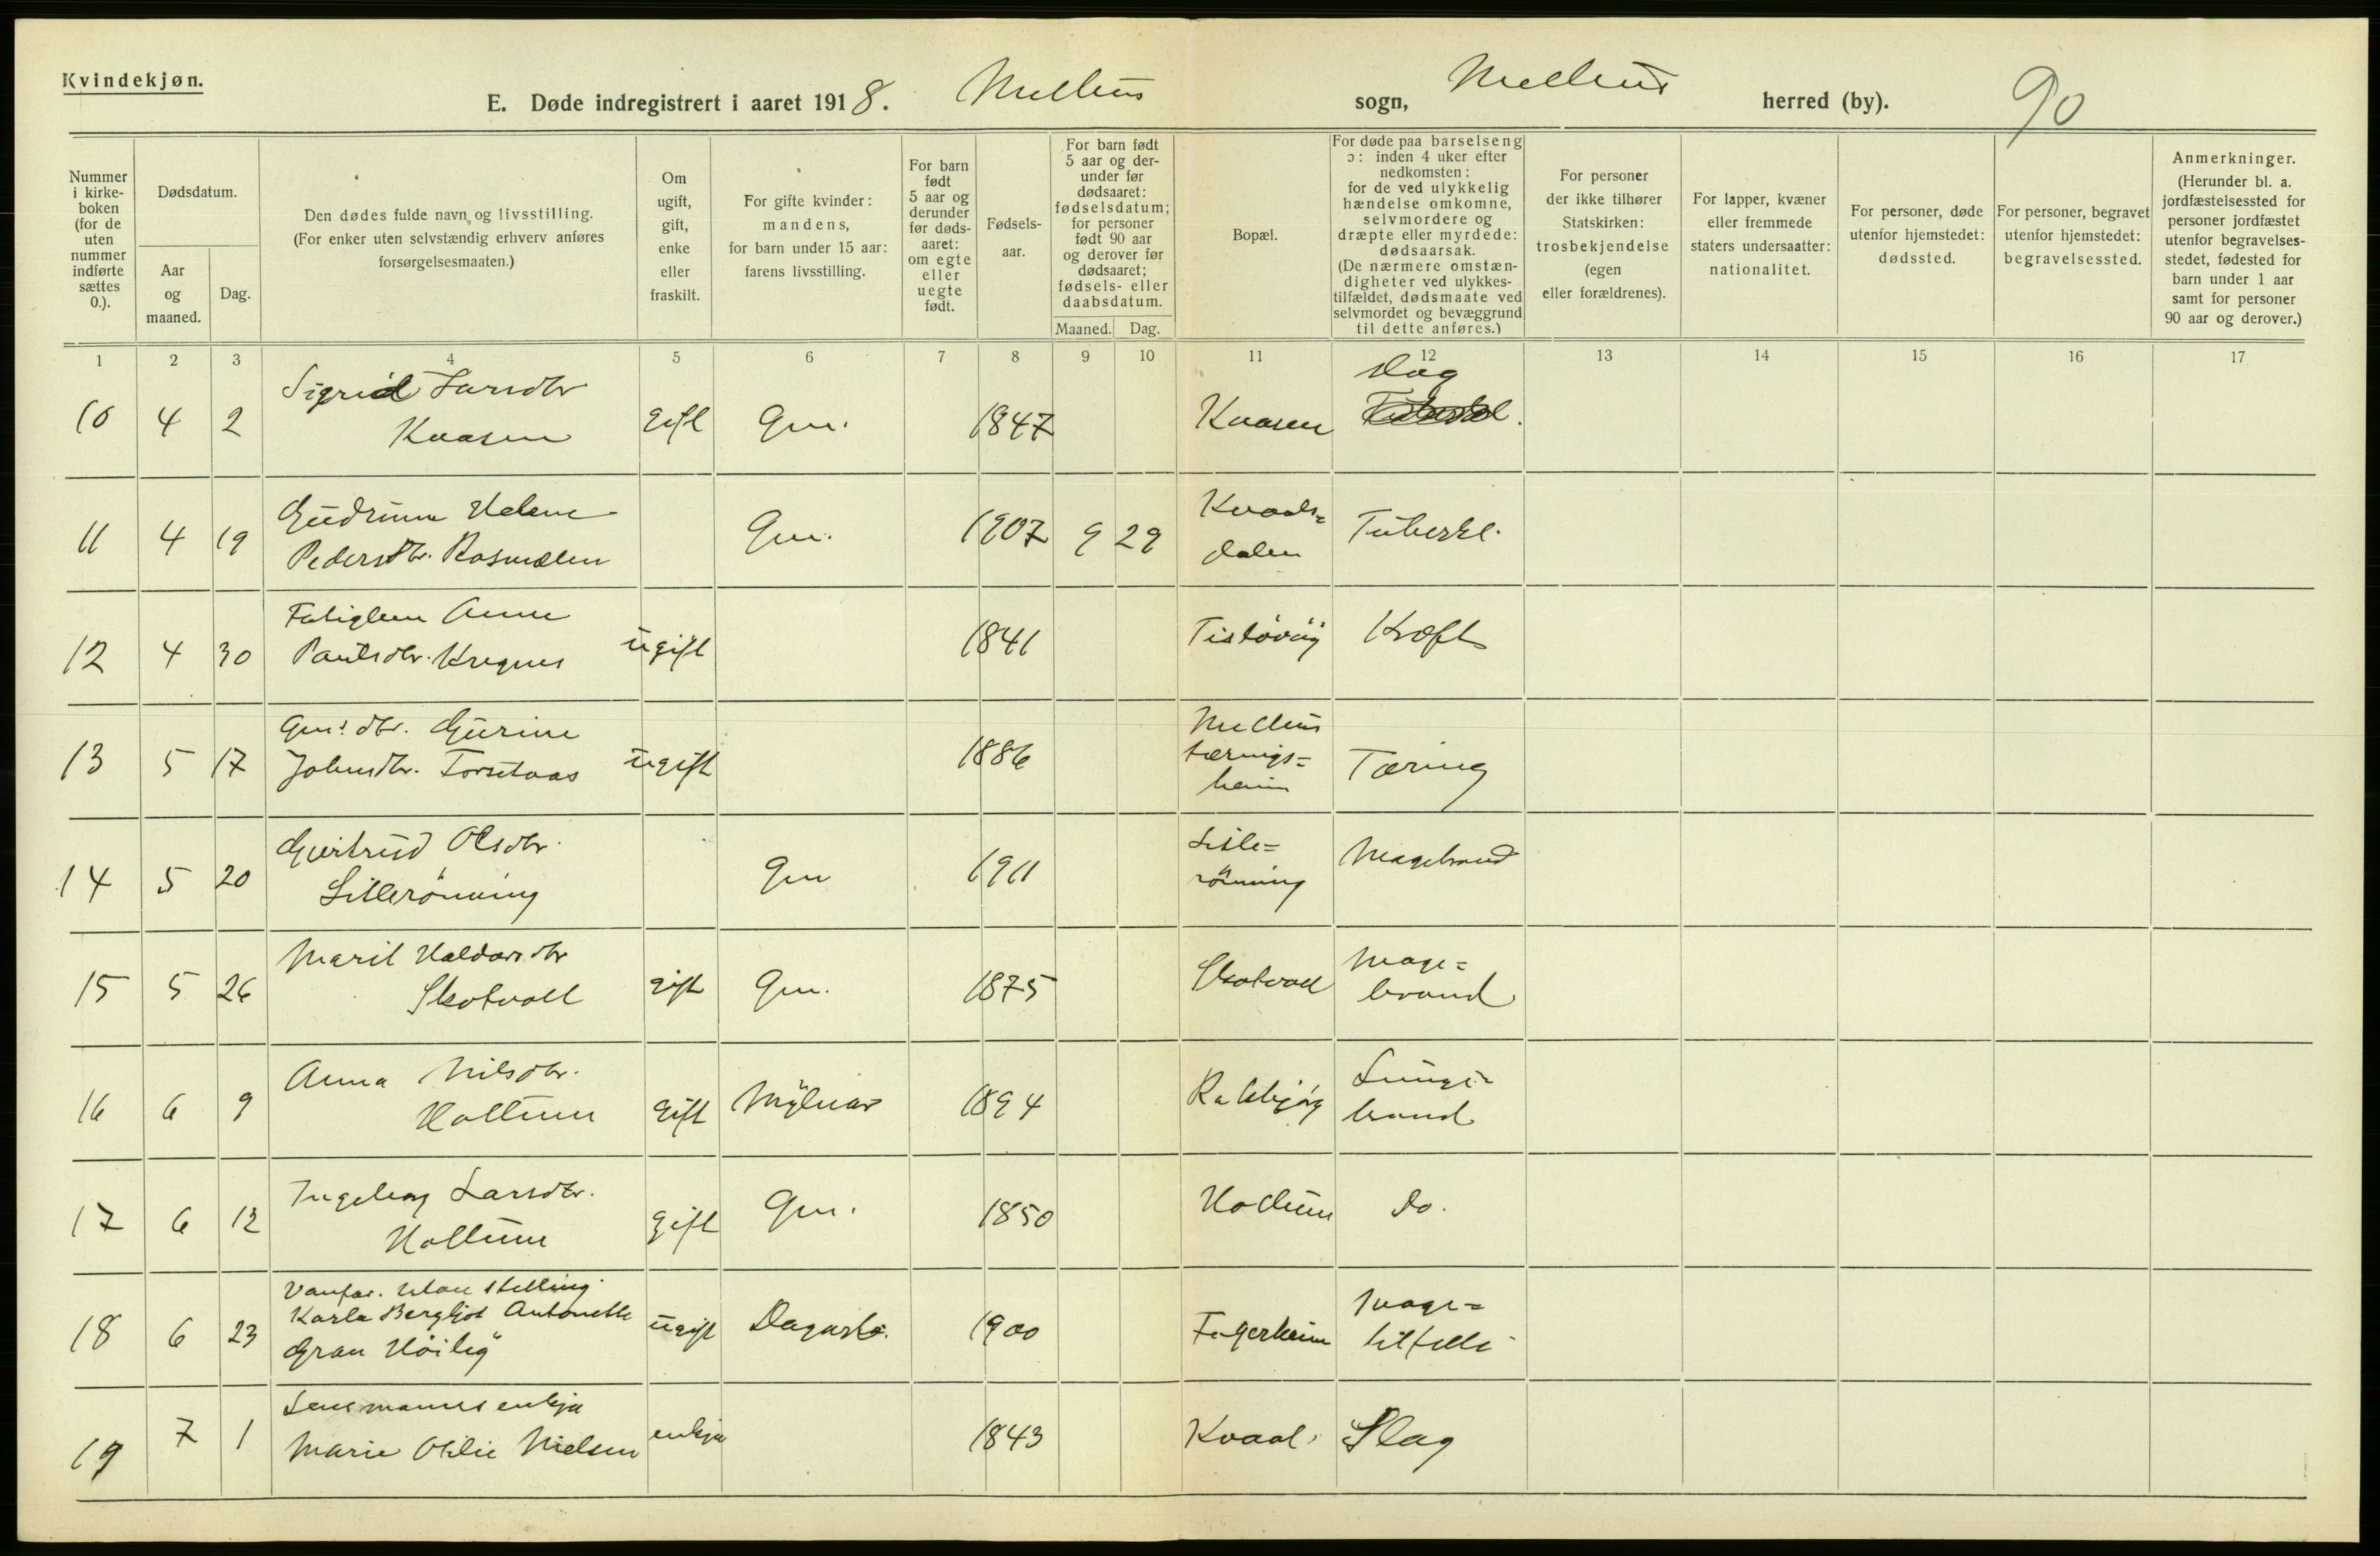 Kvindekjøn.
E. Døde indregistrert i aaret 1918. Melhus sogn, Melhus herred (by). 90
Nummer i kirke-boken (for de uten nummer indførte sættes 0.).
Dødsdatum.
Aar og maaned.
Dag.
Den dødes fulde navn og livsstilling.
(For enker uten selvstændig erhverv anføres
forsørgelsesmaaten.)
Om ugift, gift, enke eller fraskilt.
For gifte kvinder:
mandens,
for barn under 15 aar:
farens livsstilling.
For barn født 5 aar og derunder før døds-aaret: om egte eller uegte født.
Fødsels-aar.
For barn født 5 aar og der-under før dødsaaret: fødselsdatum; for personer født 90 aar og derover før dødsaaret; fødsels- eller daabsdatum.
Maaned. Dag.
Bopæl.
For døde paa barselseng
ɔ: inden 4 uker efter
nedkomsten:
for de ved ulykkelig
hændelse omkomne,
selvmordere og
dræpte eller myrdede:
dødsaarsak.
(De nærmere omstæn-
digheter ved ulykkes-
tilfældet, dødsmaate ved
selvmordet og bevæggrund
til dette anføres.)
For personer
der ikke tilhører
Statskirken:
trosbekjendelse
(egen
eller forældrenes).
For lapper, kvæner
eller fremmede
staters undersaatter:
nationalitet.
For personer, døde
utenfor hjemstedet:
dødssted.
For personer, begravet
utenfor hjemstedet:
begravelsessted.
Anmerkninger.
(Herunder bl. a.
jordfæstelsessted for
personer jordfæstet
utenfor begravelses-
stedet, fødested for
barn under 1 aar
samt for personer
90 aar og derover.)
1 2 3 4 5 6 7 8 9 10 11 12 13 14 15 16 17
10 4 2 Sigrid Larsdtr Kvasen gift Gm. 1847 Kvasen slag
11 4 19 Gudrun Helene Pedersdtr. Rosmælen Gm. 1907 9 29 Kvaals=dalen Tuberkl.
12 4 30 Fatiglem Anne Paulsdtr. Kregnes ugift 1841 Kræft
13 5 17 Gm.s dtr. Gurine Johnsdtr. Torsetaas ugift 1886 Melhus tærings=heim Tæring
14 5 20 Gjertrud Olsdtr. Lillerönning Gm 1911 Lille=rönning Magebrand
15 5 26 Marit Haldorsdtr Skotvoll gift Gm. 1875 Skotvoll Mage=brand
16 6 9 Anna Nilsdtr. Hollum gift Mylnar 1894 Lunge=brand
17 6 12 Ingeborg Larsdtr. Hollum gift Gm. 1850 Hollum Do.
18 6 23 Vanfør. utan stelling Karla Bergljot Antonette Gran Höilig ugift Dagarb. 1900 Fagerheim Mage=tilfelle
19 7 1 Lensmannsenkja Marie Otilie Nielsen enkja 1843 Kvaal Slag